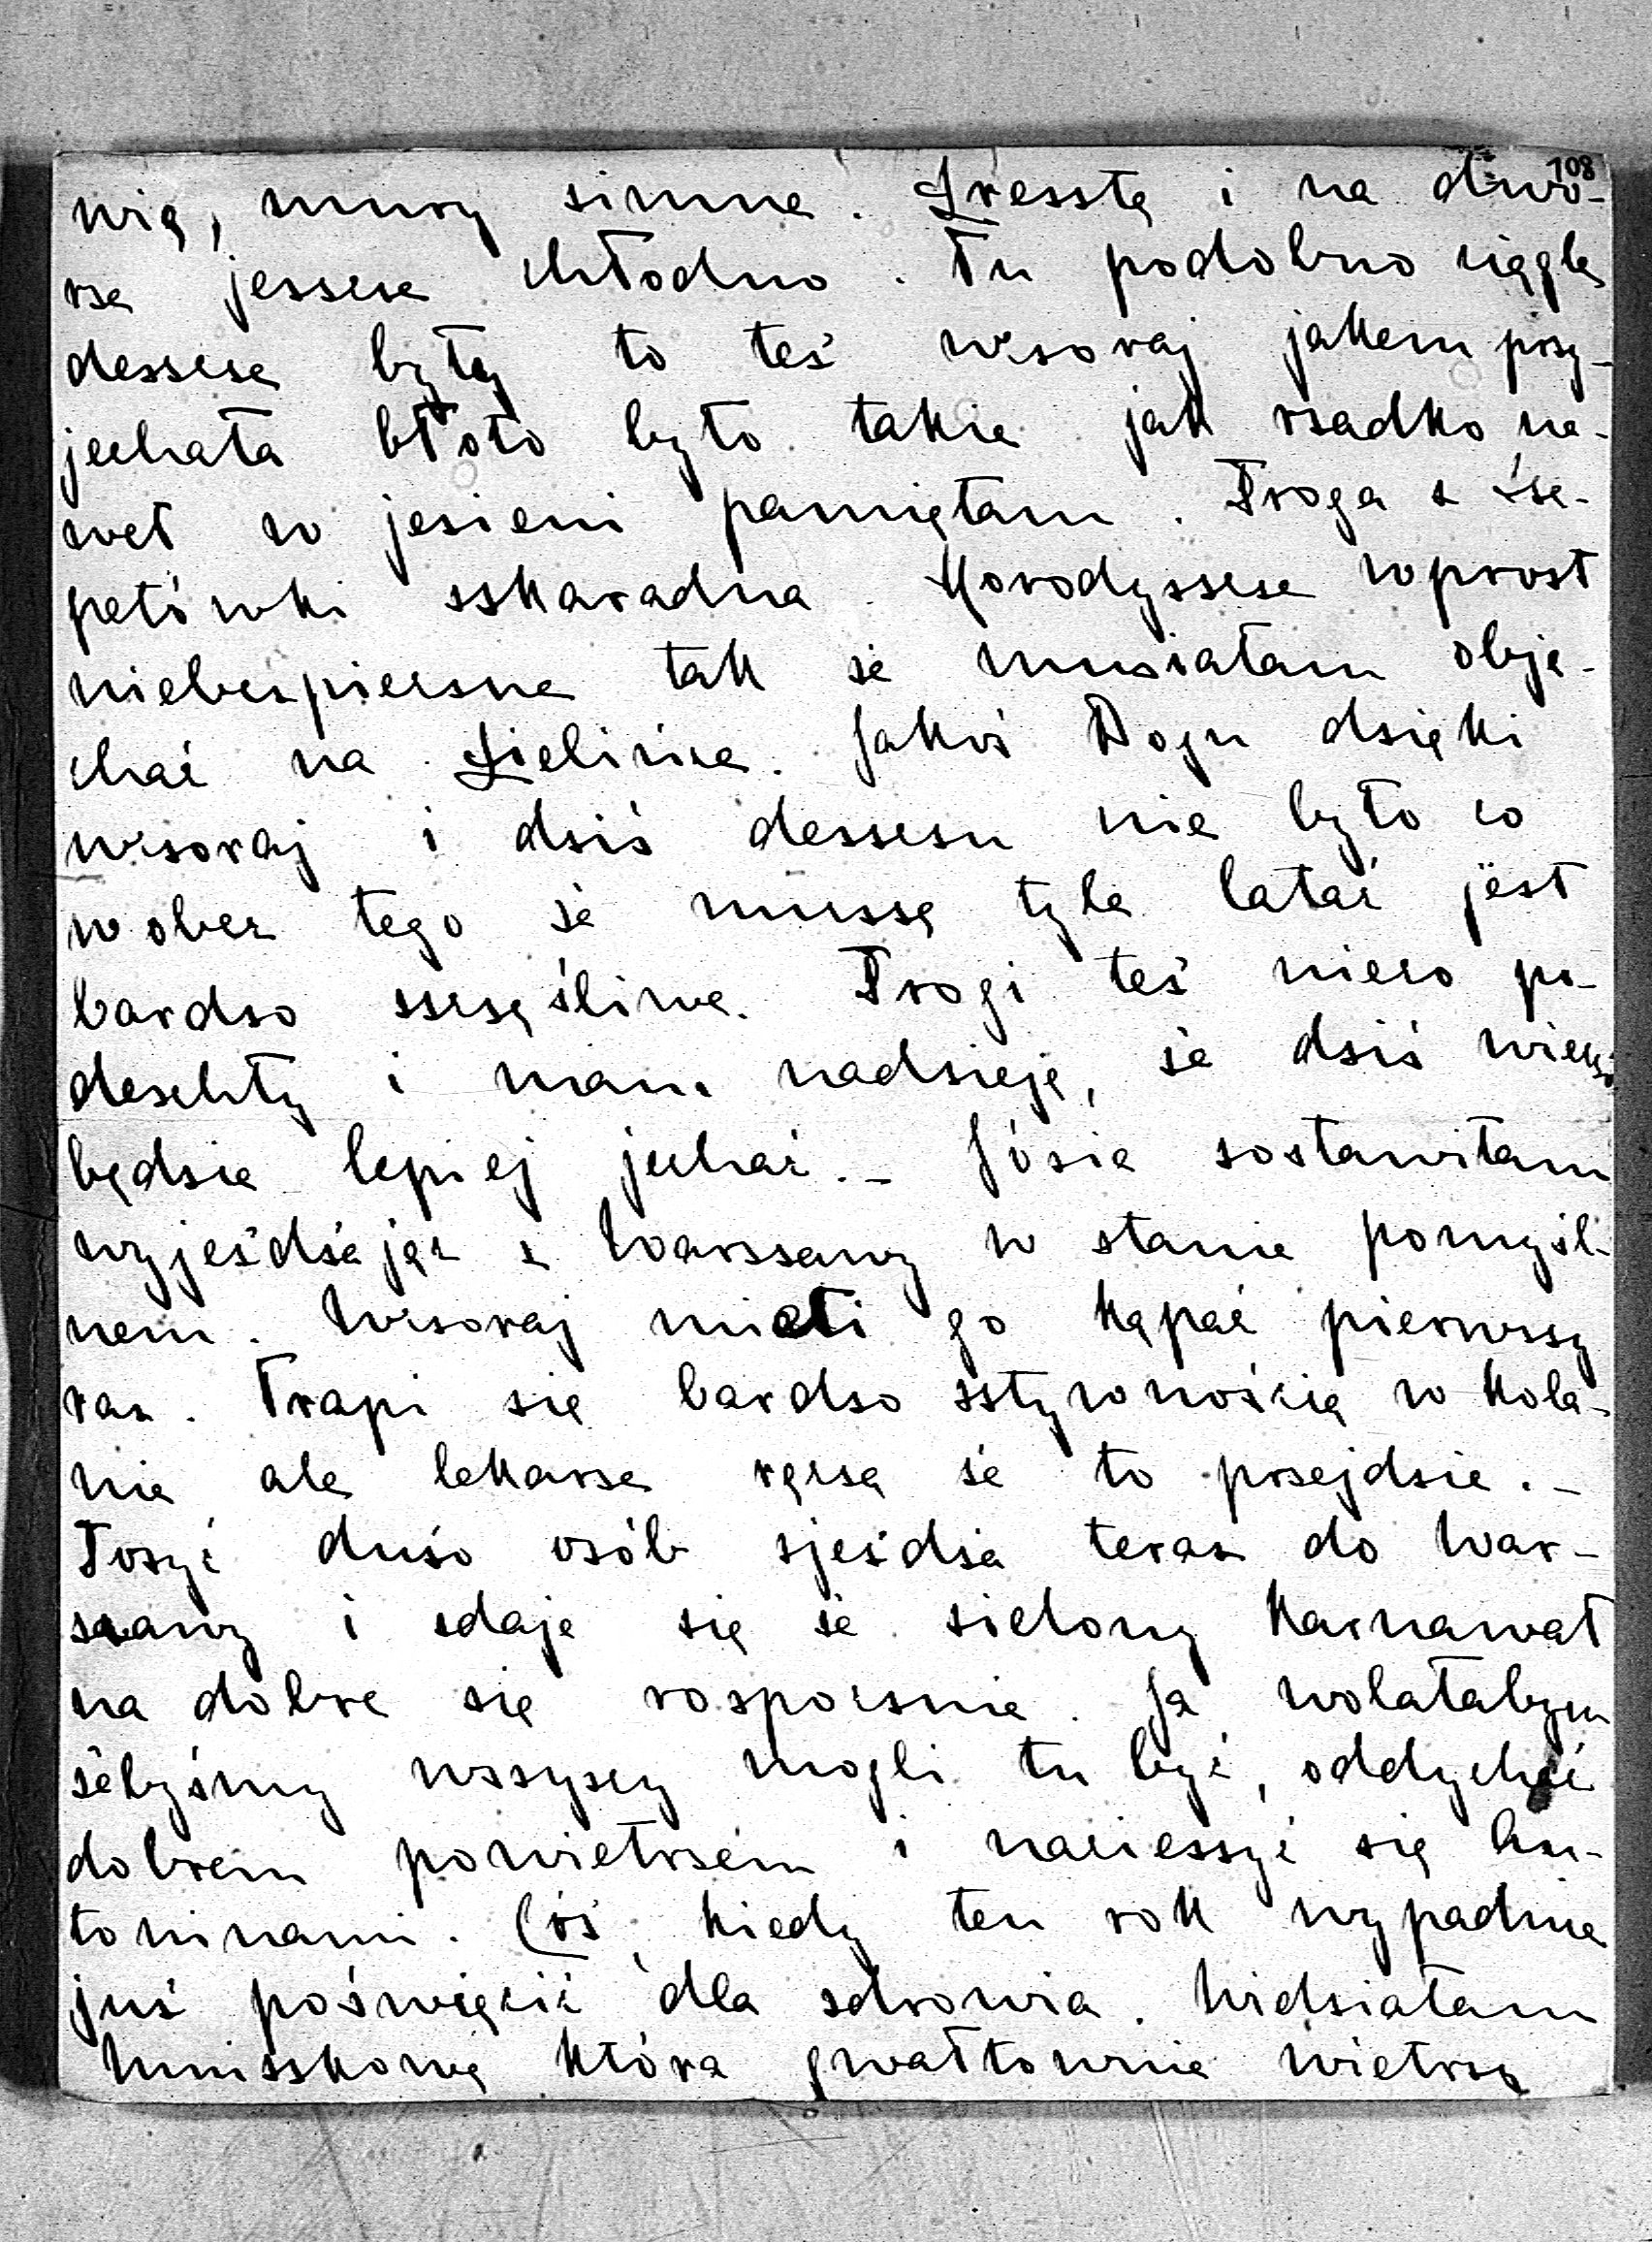 108
nią, mury zimne. Zresztą i na dwo-
rze jeszcze chłodno. Tu podobno ciągle
deszcze były to też wczoraj jakem przy-
jechała błoto było takie jak rzadko na-
wet w jesieni pamiętam. Droga z Sze-
petówki szkaradna. Horodyszcze wprost
niebezpieczne tak że musiałam obje-
chać na Zielińce. Jakoś Bogu dzięki
wczoraj i dziś deszczu nie było co
wobec tego że muszę tyle latać jest
bardzo szczęśliwe. Drogi też nieco po-
deschły i mam nadzieję, że dziś wiecz.
będzie lepiej jechać. – Józia zostawiłam
wyjeżdżając z Warszawy w stanie pomyśl-
nem. Wczoraj mieli go kąpać pierwszy
raz. Trapi się bardzo sztywnością w kola-
nie ale lekarze ręczą że to przejdzie. –
Dosyć dużo osób zjeżdża teraz do War-
szawy i zdaje się że zielony karnawał
na dobre się rozpocznie. Ja wolałabym
żebyśmy wszyscy mogli tu być, oddychać
dobrem powietrzem i nacieszyć się An-
toninami. Cóż, kiedy ten rok wypadnie
już poświęcić dla zdrowia. Widziałam
Mniszkową która gwałtownie wietrzą